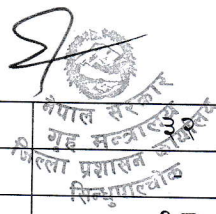 नेपाल सरकार
गृह मन्त्रालय
३२
जिल्ला प्रशासन कार्यालय
सिन्धुपाल्चोक